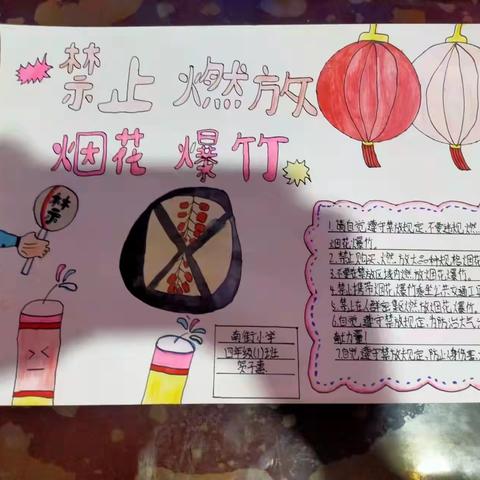 禁止 燃放
烟花 爆竹
禁
1.请自觉遵守禁放规定,不要违规燃
烟花爆竹。
2.禁止购买、燃放大一种规格烟花
3.不要在禁放区域内燃放烟花爆竹。
4.禁止携带烟花爆竹乘坐公共交通工
5.禁止在人群密集区燃放烟花爆竹。
6.自觉遵守禁放规定,为防治大气
献力量!
7.自觉遵守禁放规定,防止身伤害
南街小学
四年级(1)班
贺子惠